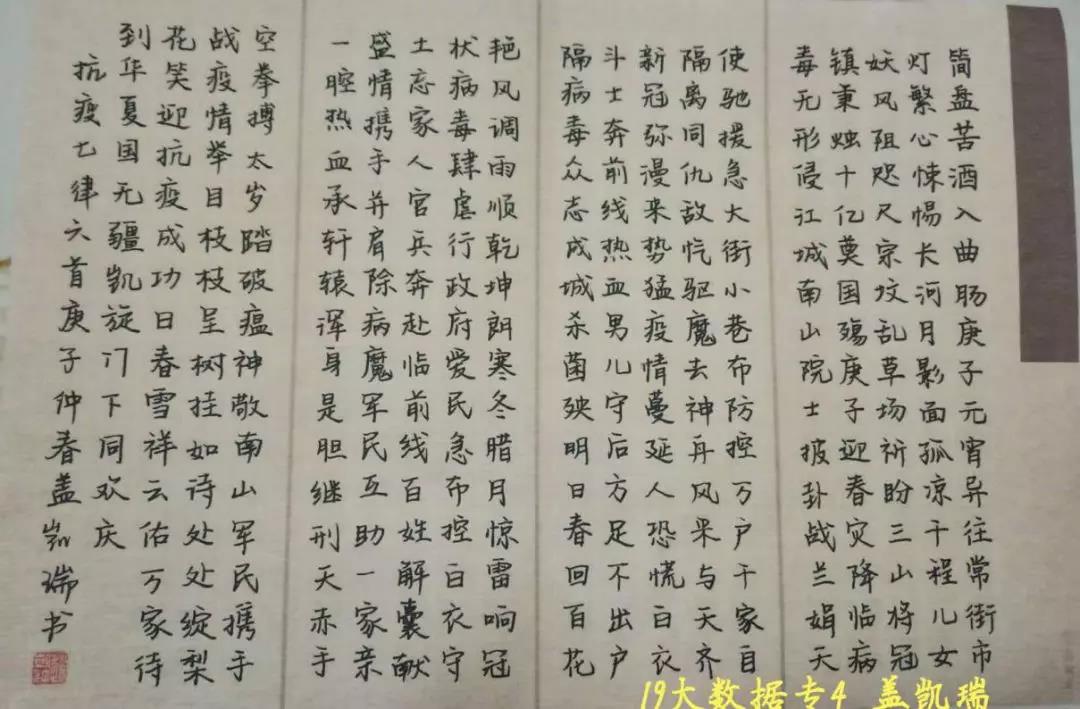 箇盘苦酒入曲肠庚子元宵异往常街市
灯繁心悚惕长河月影面孤凉千程儿女
妖风阻咫尺宗坟乱草场祈盼三山将冠
镇秉烛十亿奠国殇庚子迎春灾降临病
毒无形侵江城南山院士披卦战兰娟天
使驰援急大街小巷布防控万户千家自
隔离同仇敌忾驱魔去神丹风采与天齐
新冠弥漫来势猛疫情蔓延人恐慌白衣
斗士奔前线热血男儿守后方足不出户
隔病毒众志成城杀菌殃明日春回百花
艳风调雨顺乾坤朗寒冬腊月惊雷响冠
状病毒肆虐行政府爱民急布控白衣守
土忘家人官兵奔赴临前线百姓解囊献
盛情携手并肩除病魔军民互助一家亲
一腔热血承轩辕浑身是胆继刑天赤手
空拳搏太岁踏破瘟神敞南山军民携手
战疫情举目枝枝呈树挂如诗处处绽梨
花笑迎抗疫成功日春雪祥云佑万家待
到华夏国无疆凯旋门下同欢庆
抗疫七律六首庚子仲春盖凯瑞书
19大数据专4 盖凯瑞